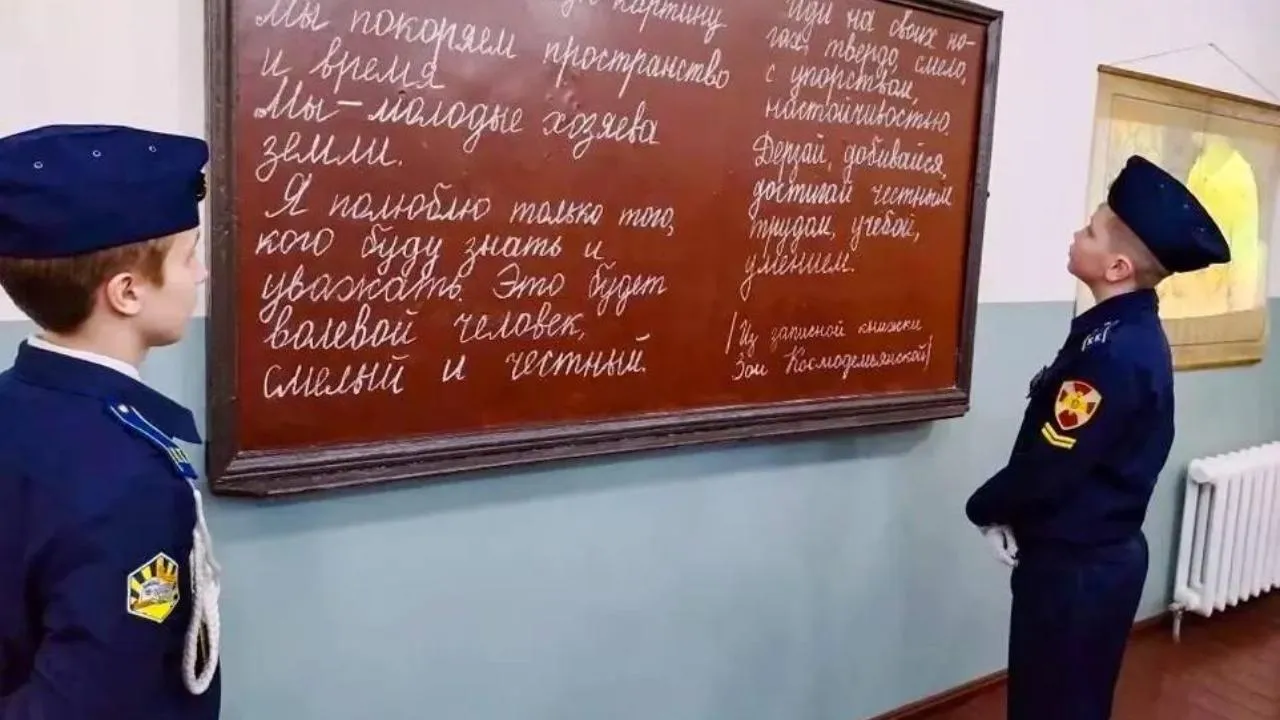 картину
Мы покоряем пространство
и время
Мы – молодые хозяева
земли.
Я полюблю только того,
кого буду знать и
уважать. Это будет
волевой человек,
смелый и честный.
Иди на своих но-
гах, твердо, смело,
с упорством,
настойчивостью.
Дерзай, добивайся,
достигай честным
трудом, учебой,
умением.
/Из записной книжки
Зои Космодемьянской/